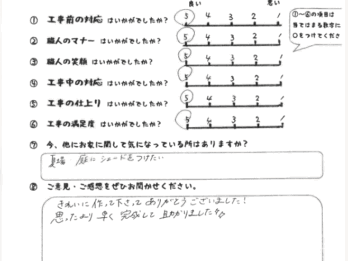 良い 悪い
① 工事前の対応 はいかがでしたか？ 5 4 3 2 1
② 職人のマナー はいかがでしたか？ 5 4 3 2 1
③ 職人の笑顔 はいかがでしたか？ 5 4 3 2 1
④ 工事中の対応 はいかがでしたか？ 5 4 3 2 1
⑤ 工事の仕上り はいかがでしたか？ 5 4 3 2 1
⑥ 工事の満足度 はいかがでしたか？ 5 4 3 2 1
①～⑥の項目は
当てはまる数字に
○をつけてくださ
⑦ 今、他にお家に関して気になっている所はありますか？
夏場 庭にシェードをつけたい
⑧ ご意見・ご感想をぜひお聞かせください。
きれいに作って下さってありがとうございました！
思ったより早く完成して助かりました